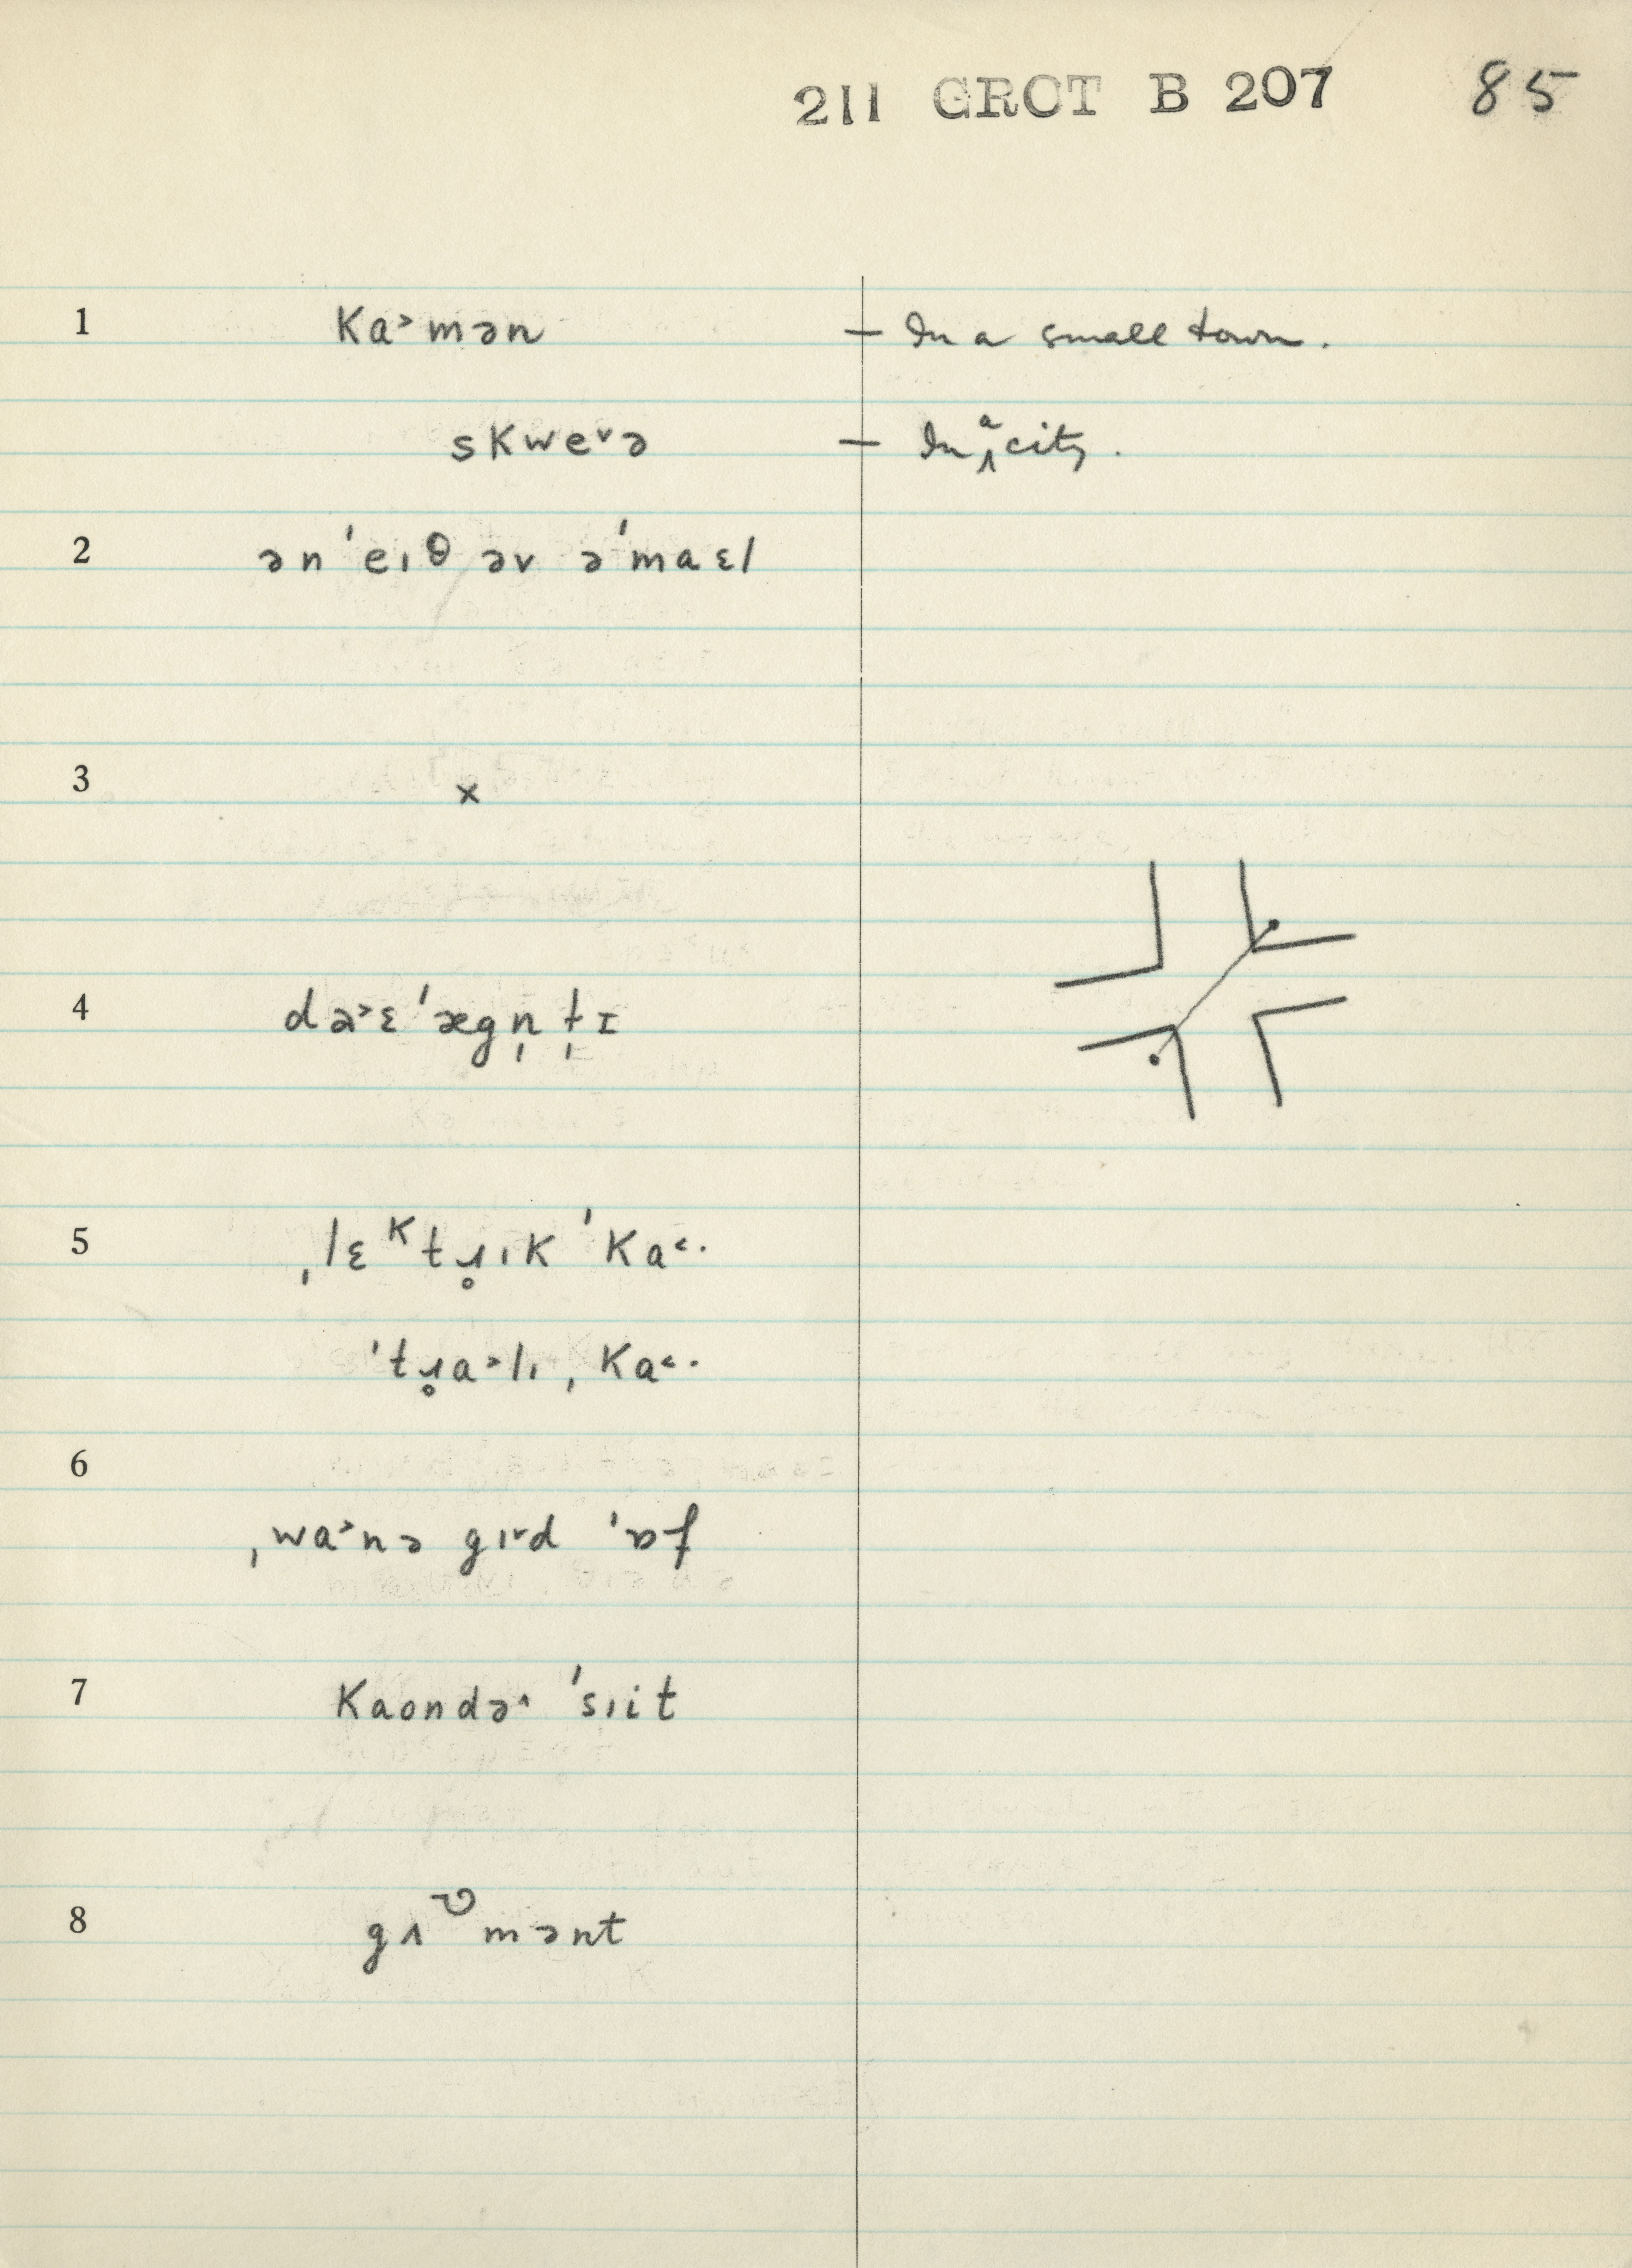 211 GROT B 207 85
1 ka˃mən — In a small town.
skwe˅ə — In a city.
2 ən ˈeɪθ əv əˈmaɛl
3 ×
4 də˃ɛˈægn̩t̩ɪ
5 ˌlɛᴷtɹ̥ɪk ˈka˂·
ˈtɹ̥a˃lɪ ˌka˂·
6
ˌwa˃nə gɪ˅d ˈɒf
7 kaondə˄ ˈsɪit
8 gʌ^ʊmənt